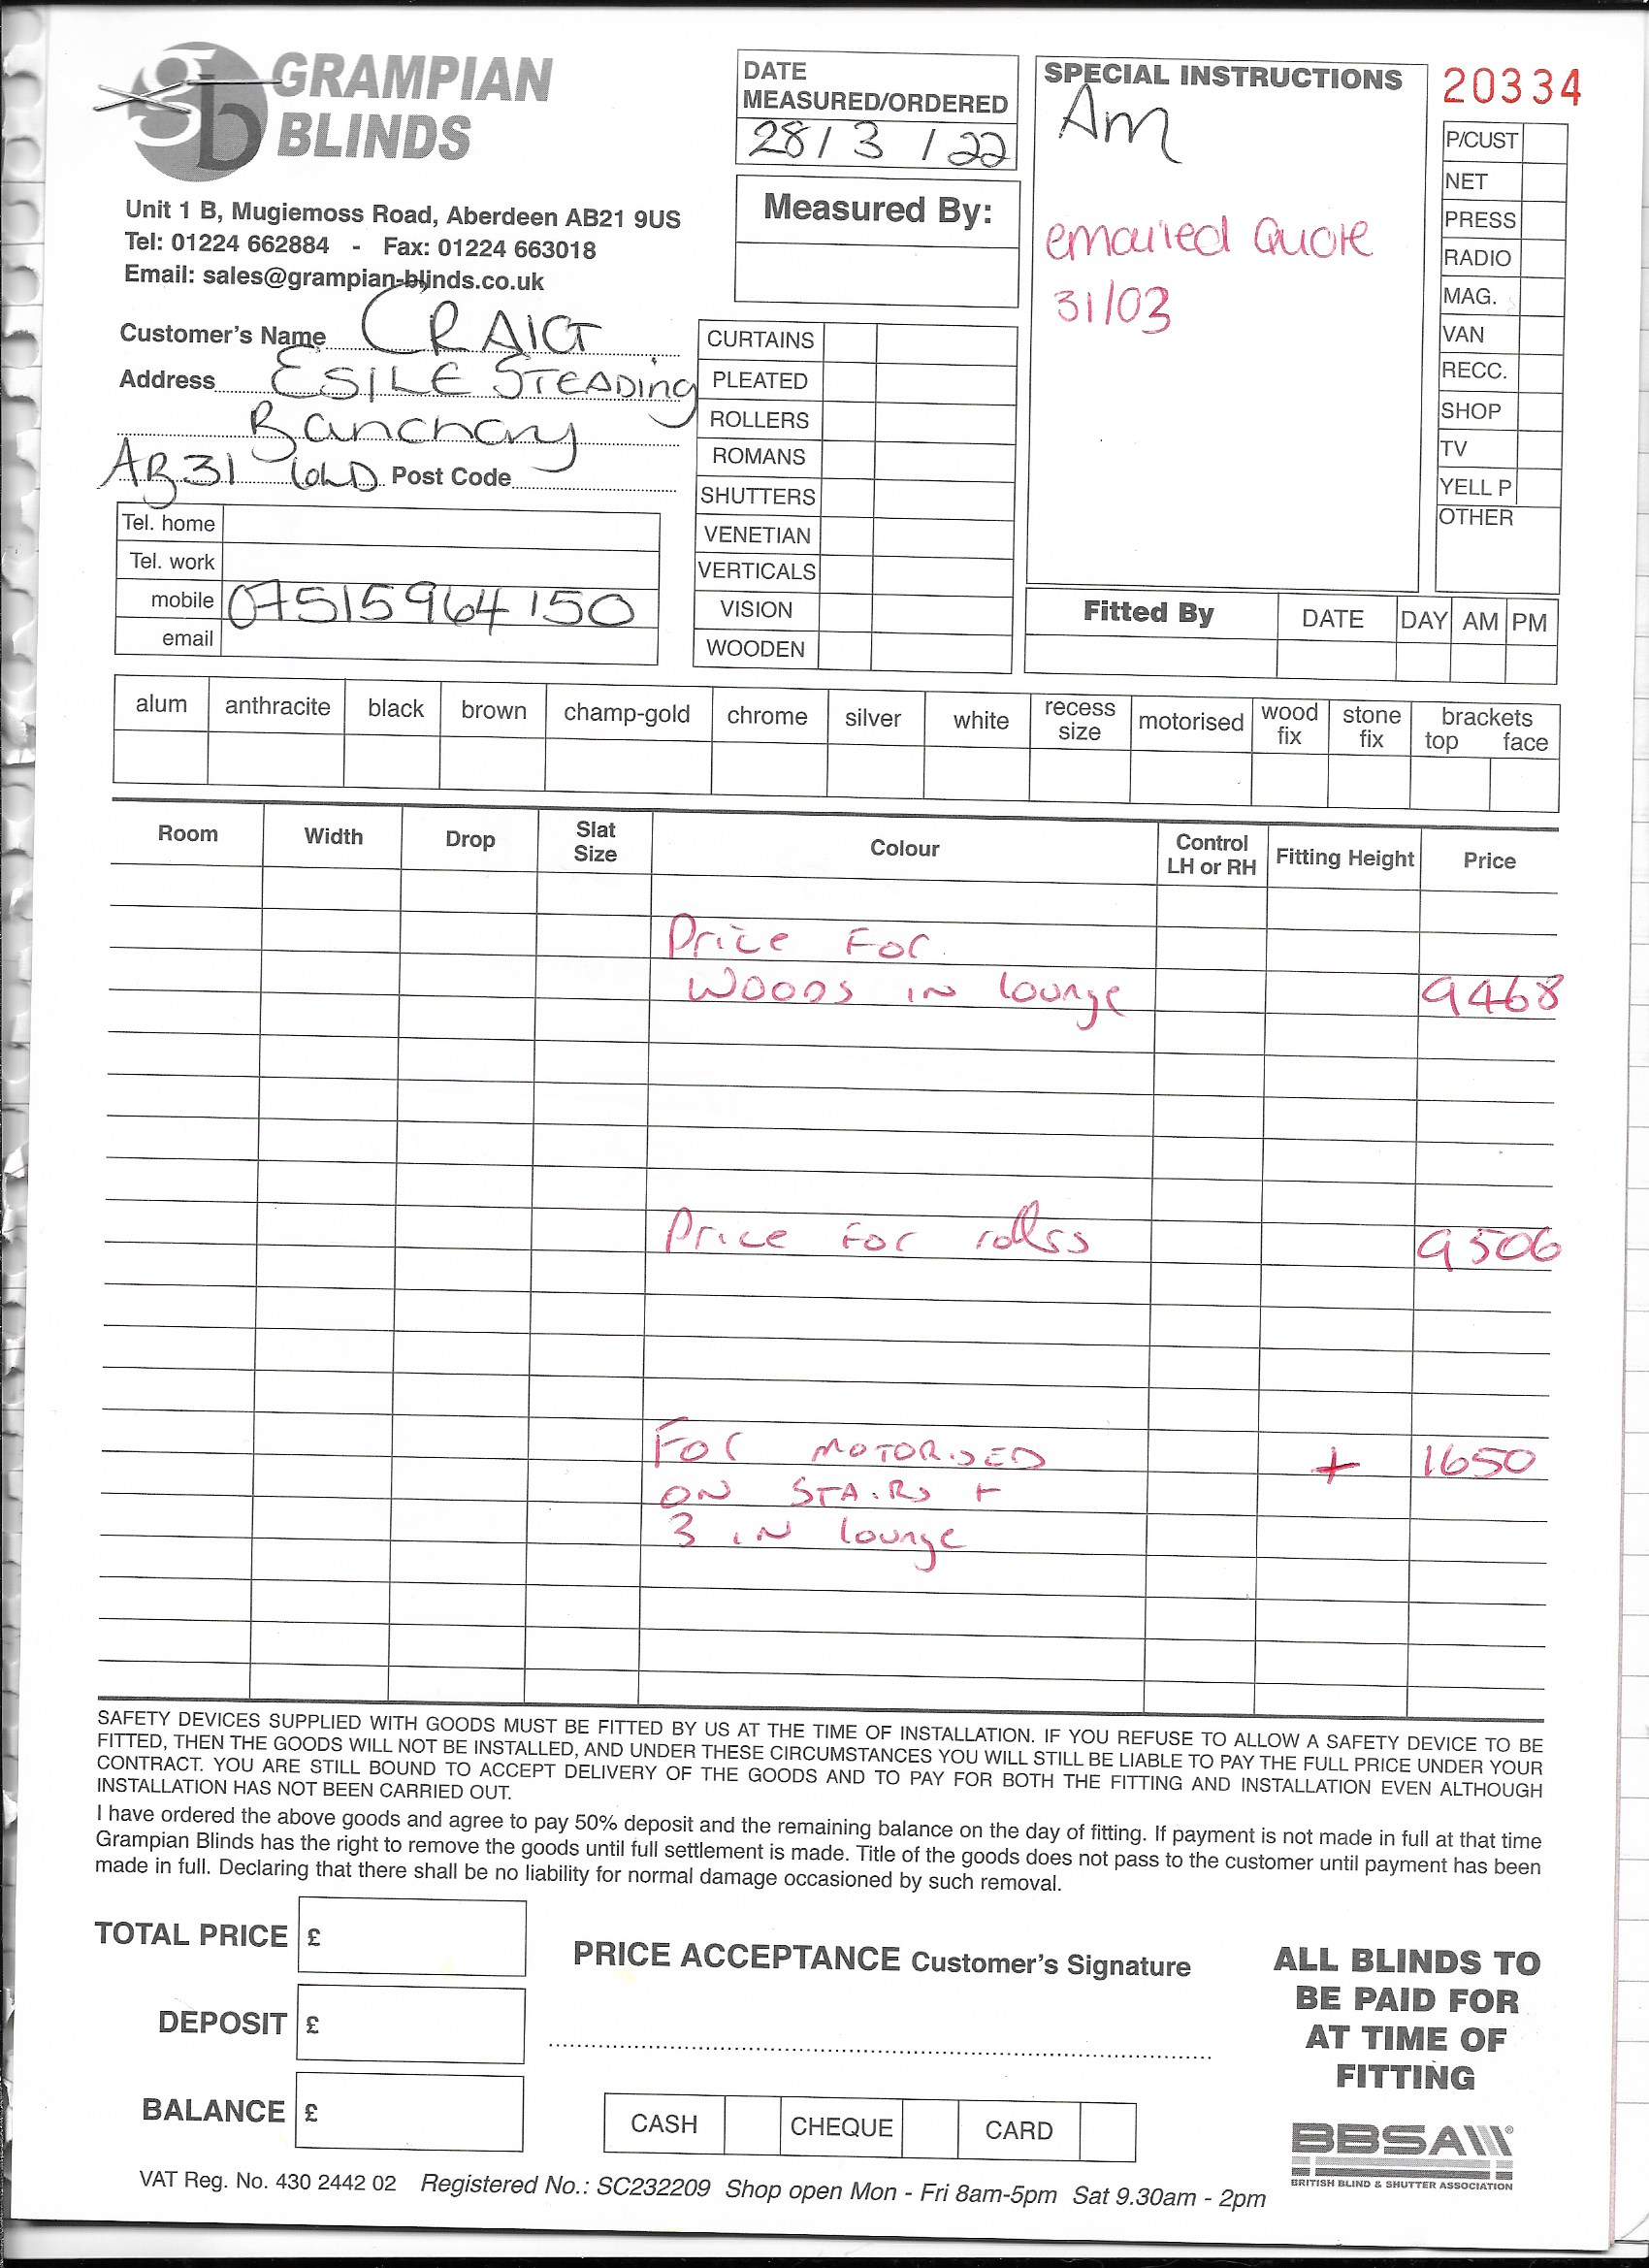 gb GRAMPIAN
BLINDS
Unit 1 B, Mugiemoss Road, Aberdeen AB21 9US
Tel: 01224 662884 - Fax: 01224 663018
Email: sales@grampian-blinds.co.uk
DATE
MEASURED/ORDERED
28/3/22
Measured By:
SPECIAL INSTRUCTIONS
Am
emailed Quote
31/03
20334
P/CUST
NET
PRESS
RADIO
MAG.
VAN
RECC.
SHOP
TV
YELL P
OTHER
Customer's Name CRAIG
Address ESILE STEADING
Banchory
AB31 6LD Post Code
Tel. home
Tel. work
mobile 07515964150
email
CURTAINS
PLEATED
ROLLERS
ROMANS
SHUTTERS
VENETIAN
VERTICALS
VISION
WOODEN
Fitted By DATE DAY AM PM
alum anthracite black brown champ-gold chrome silver white recess size motorised wood fix stone fix brackets top face
Room Width Drop Slat Size Colour Control LH or RH Fitting Height Price
Price For
WOODS IN lounge 9468
Price For rollrs 9506
For MOTORISED + 1650
ON STAIRS +
3 IN lounge
SAFETY DEVICES SUPPLIED WITH GOODS MUST BE FITTED BY US AT THE TIME OF INSTALLATION. IF YOU REFUSE TO ALLOW A SAFETY DEVICE TO BE
FITTED, THEN THE GOODS WILL NOT BE INSTALLED, AND UNDER THESE CIRCUMSTANCES YOU WILL STILL BE LIABLE TO PAY THE FULL PRICE UNDER YOUR
CONTRACT. YOU ARE STILL BOUND TO ACCEPT DELIVERY OF THE GOODS AND TO PAY FOR BOTH THE FITTING AND INSTALLATION EVEN ALTHOUGH
INSTALLATION HAS NOT BEEN CARRIED OUT.
I have ordered the above goods and agree to pay 50% deposit and the remaining balance on the day of fitting. If payment is not made in full at that time
Grampian Blinds has the right to remove the goods until full settlement is made. Title of the goods does not pass to the customer until payment has been
made in full. Declaring that there shall be no liability for normal damage occasioned by such removal.
TOTAL PRICE £
DEPOSIT £
BALANCE £
PRICE ACCEPTANCE Customer's Signature
CASH CHEQUE CARD
ALL BLINDS TO
BE PAID FOR
AT TIME OF
FITTING
BBSA
BRITISH BLIND & SHUTTER ASSOCIATION
VAT Reg. No. 430 2442 02 Registered No.: SC232209 Shop open Mon - Fri 8am-5pm Sat 9.30am - 2pm